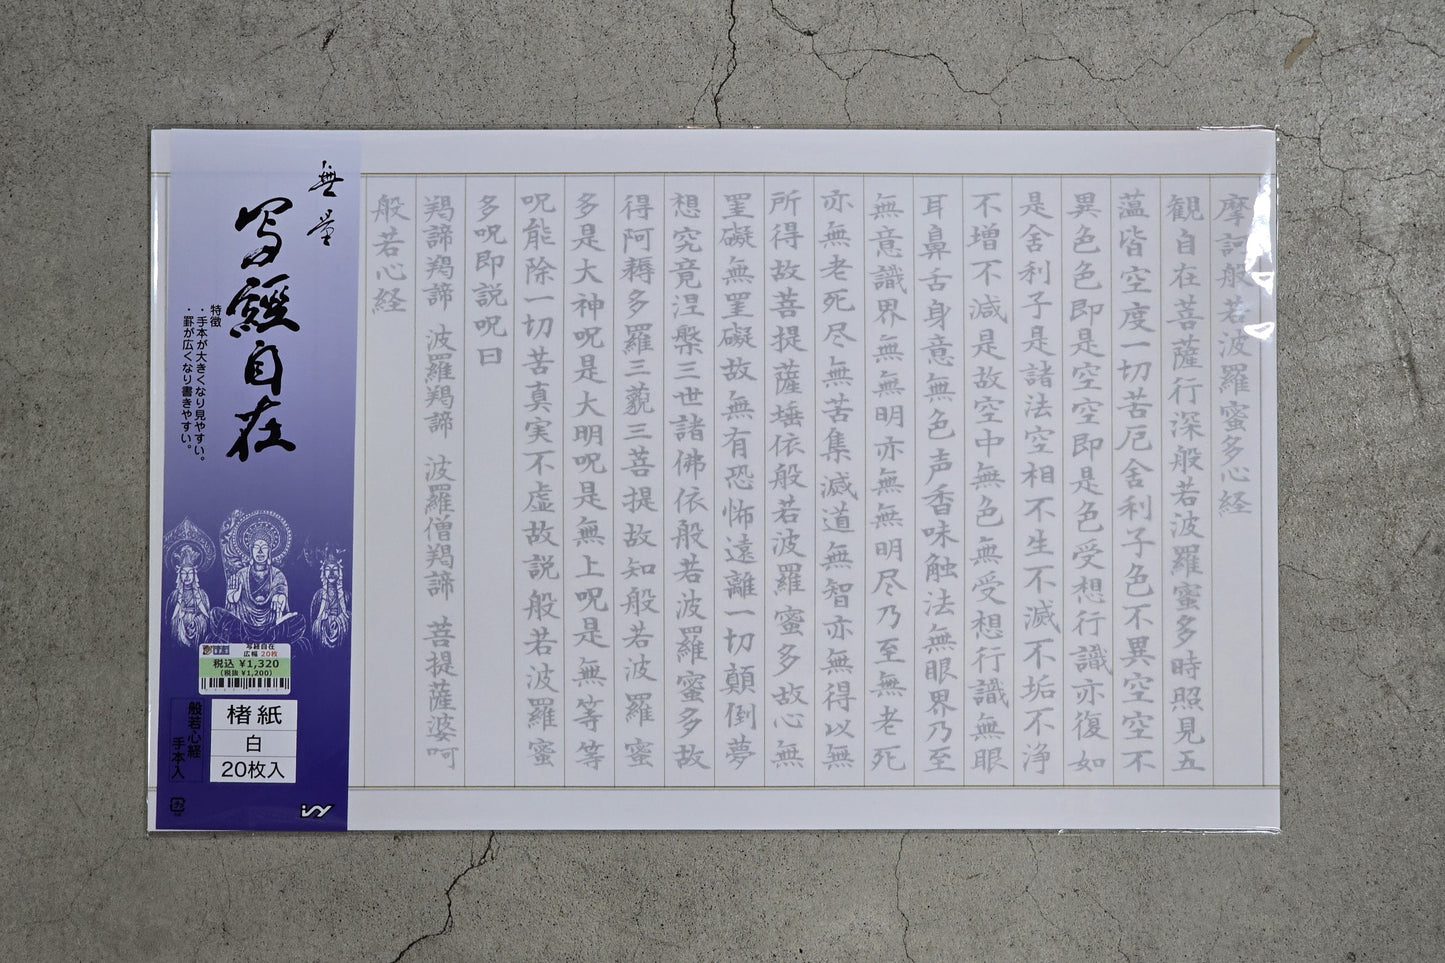 摩訶般若波羅蜜多心経
観自在菩薩行深般若波羅蜜多時照見五
蘊皆空度一切苦厄舎利子色不異空空不
異色色即是空空即是色受想行識亦復如
是舎利子是諸法空相不生不滅不垢不浄
不増不減是故空中無色無受想行識無眼
耳鼻舌身意無色声香味触法無眼界乃至
無意識界無無明亦無無明尽乃至無老死
亦無老死尽無苦集滅道無智亦無得以無
所得故菩提薩埵依般若波羅蜜多故心無
罣礙無罣礙故無有恐怖遠離一切顛倒夢
想究竟涅槃三世諸佛依般若波羅蜜多故
得阿耨多羅三藐三菩提故知般若波羅蜜
多是大神呪是大明呪是無上呪是無等等
呪能除一切苦真実不虚故説般若波羅蜜
多呪即説呪曰
羯諦羯諦 波羅羯諦 波羅僧羯諦 菩提薩婆呵
般若心経
無量
写経自在
特徴
・手本が大きくなり見やすい。
・罫が広くなり書きやすい。
写経自在
広幅 20枚
税込 ¥1,320
(税抜 ¥1,200)
般若心経
手本入
楮紙
白
20枚入